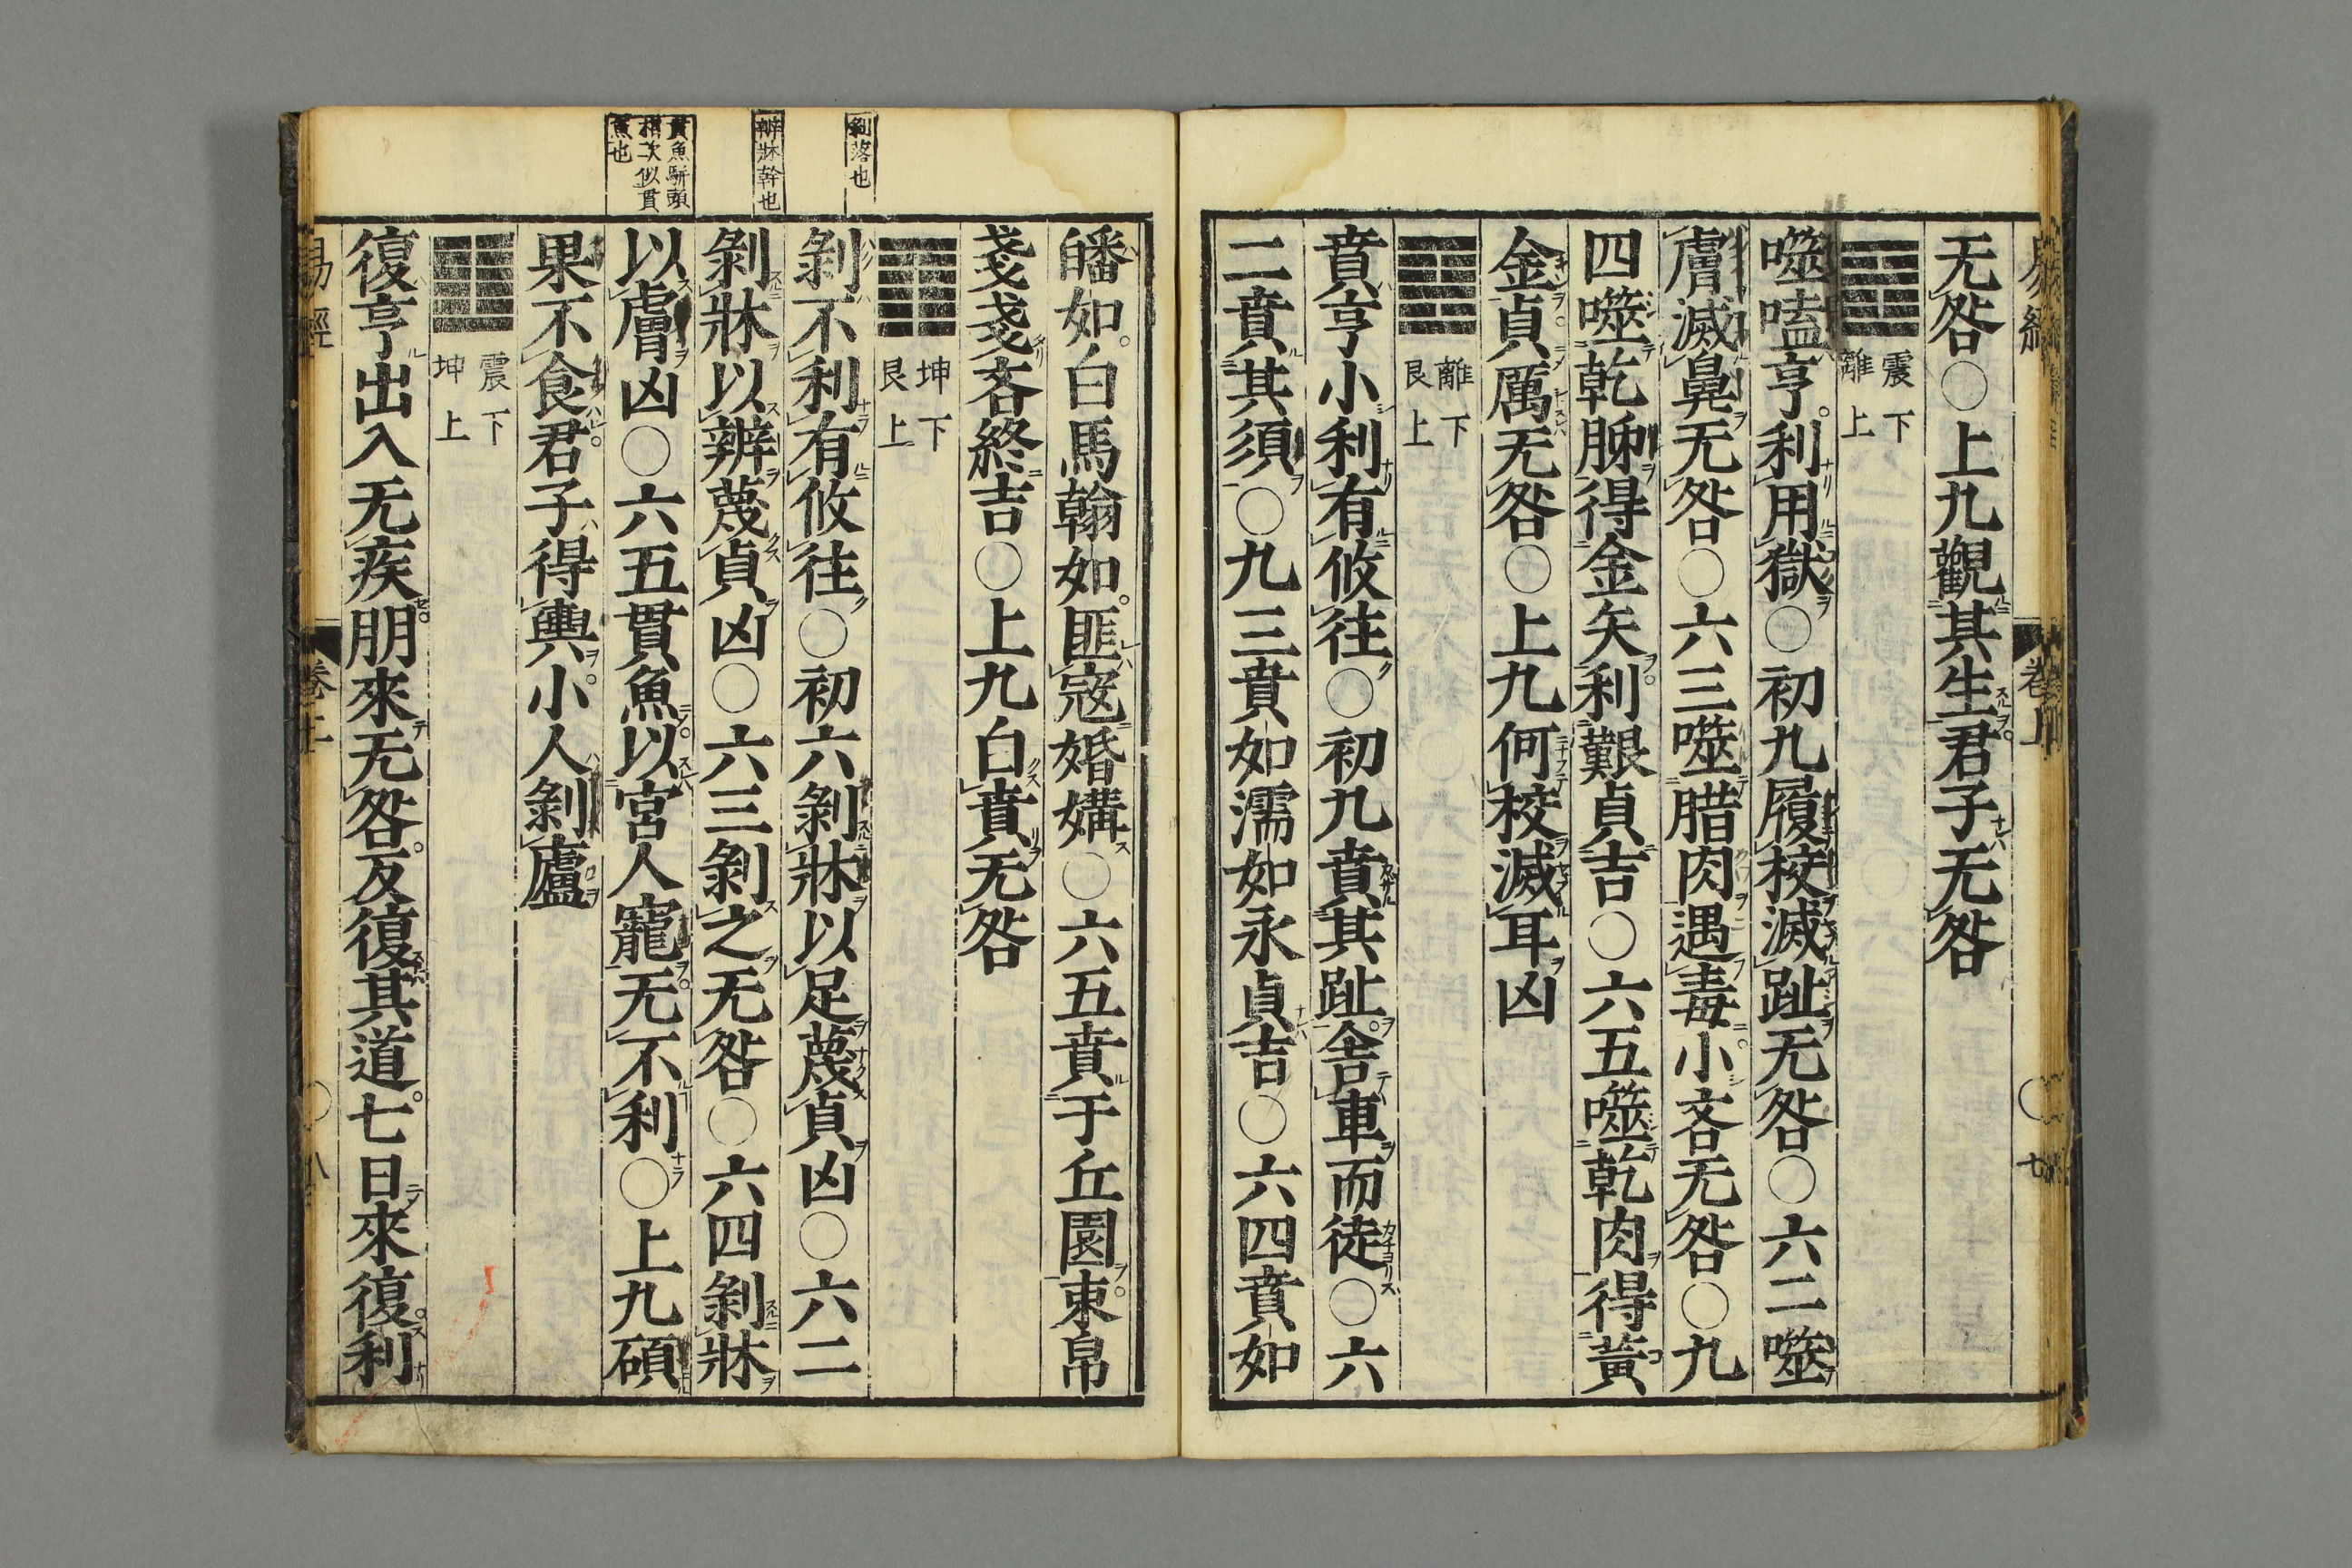 无咎○上九觀其生君子无咎
震下
離上
噬嗑亨利用獄○初九履校滅趾无咎○六二噬
膚滅鼻无咎○六三噬腊肉遇毒小吝无咎○九
四噬乾胏得金矢利艱貞吉○六五噬乾肉得黃
金貞厲无咎○上九何校滅耳凶
離下
艮上
賁亨小利有攸往○初九賁其趾舎車而徒○六
二賁其須○九三賁如濡如永貞吉○六四賁如
皤如白馬翰如匪寇婚媾○六五賁于丘園束帛
戔戔吝終吉○上九白賁无咎
坤下
艮上
剝落也
剝不利有攸往○初六剝牀以足蔑貞凶○六二
辨牀幹也
剝牀以辨蔑貞凶○六三剝之无咎○六四剝牀
貫魚駢頭
相次似貫
魚也
以膚凶○六五貫魚以宮人寵无不利○上九碩
果不食君子得輿小人剝廬
震下
坤上
復亨出入无疾朋來无咎反復其道七日來復利
易經
卷上
○八